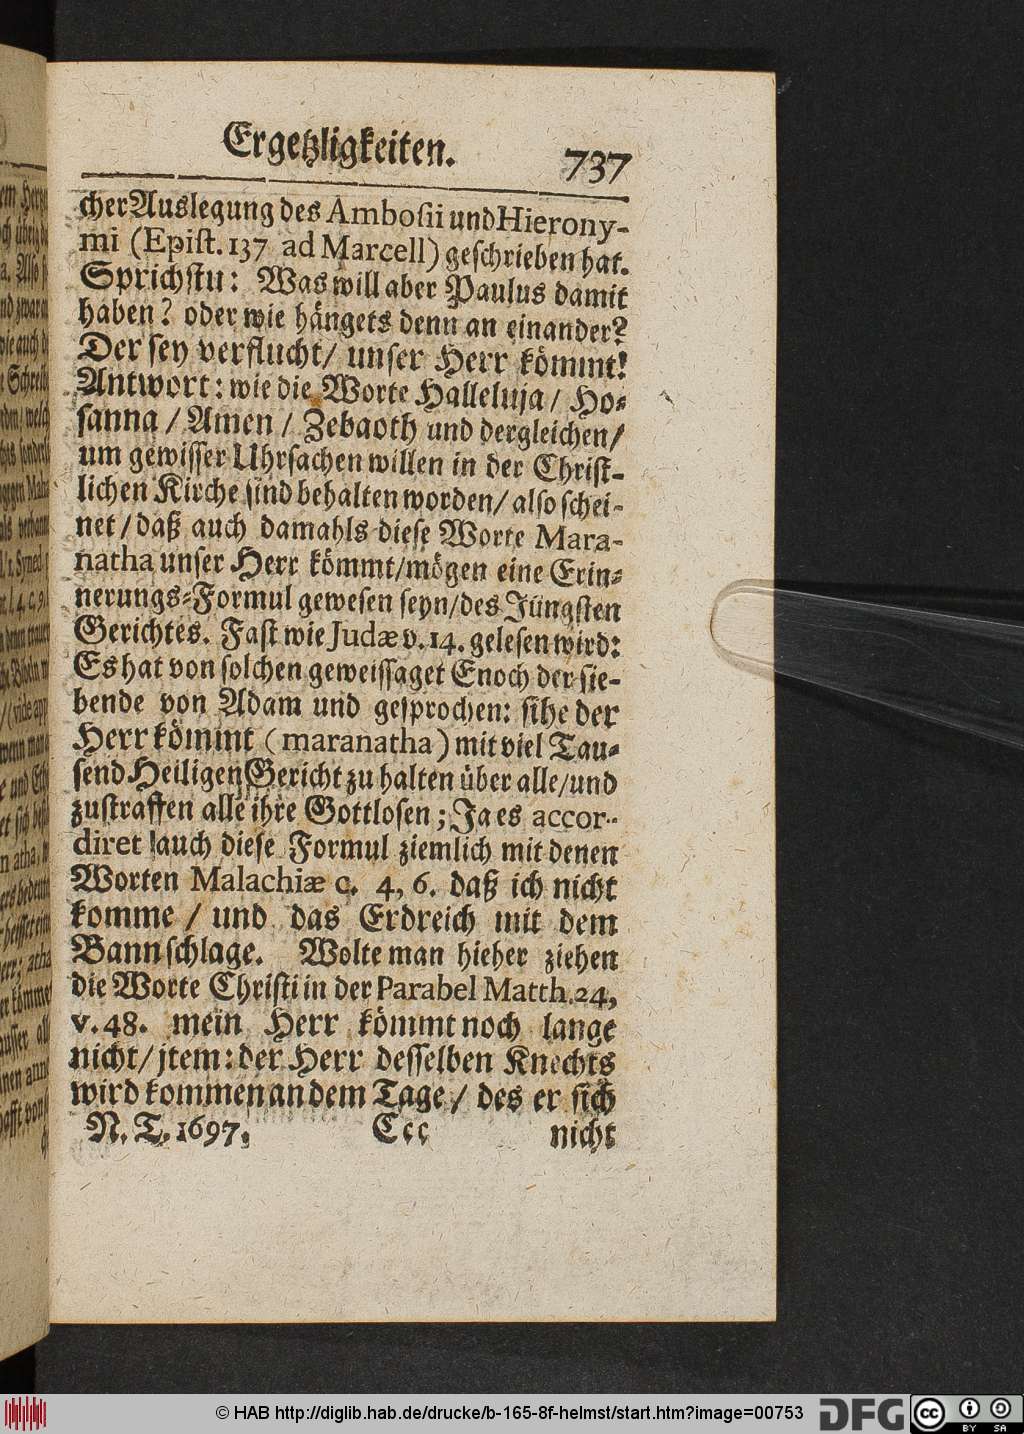 Ergetzligkeiten. 737
cher Auslegung des Ambosii und Hierony-
mi (Epist. 137 ad Marcell) geschrieben hat.
Sprichstu: Was will aber Paulus damit
haben? oder wie hängets denn an einander?
Der sey verflucht/ unser Herr kömmt!
Antwort: wie die Worte Halleluja/ Ho-
sanna / Amen / Zebaoth und dergleichen/
um gewisser Uhrsachen willen in der Christ-
lichen Kirche sind behalten worden/ also schei-
net/ daß auch damahls diese Worte Mara-
natha unser Herr kömmt/mögen eine Erin-
nerungs-Formul gewesen seyn/des Jüngsten
Gerichtes. Fast wie Judæ v. 14. gelesen wird:
Es hat von solchen geweissaget Enoch der sie-
bende von Adam und gesprochen: sihe der
Herr kömmt (maranatha) mit viel Tau-
send Heiligen Gericht zu halten über alle/und
zustraffen alle ihre Gottlosen; Ja es accor-
diret auch diese Formul ziemlich mit denen
Worten Malachiæ c. 4, 6. daß ich nicht
komme / und das Erdreich mit dem
Bann schlage. Wolte man hieher ziehen
die Worte Christi in der Parabel Matth. 24,
v. 48. mein Herr kömmt noch lange
nicht/ jtem: der Herr desselben Knechts
wird kommen an dem Tage/ des er sich
N. T. 1697. Ccc nicht
© HAB http://diglib.hab.de/drucke/b-165-8f-helmst/start.htm?image=00753 DFG cc BY SA